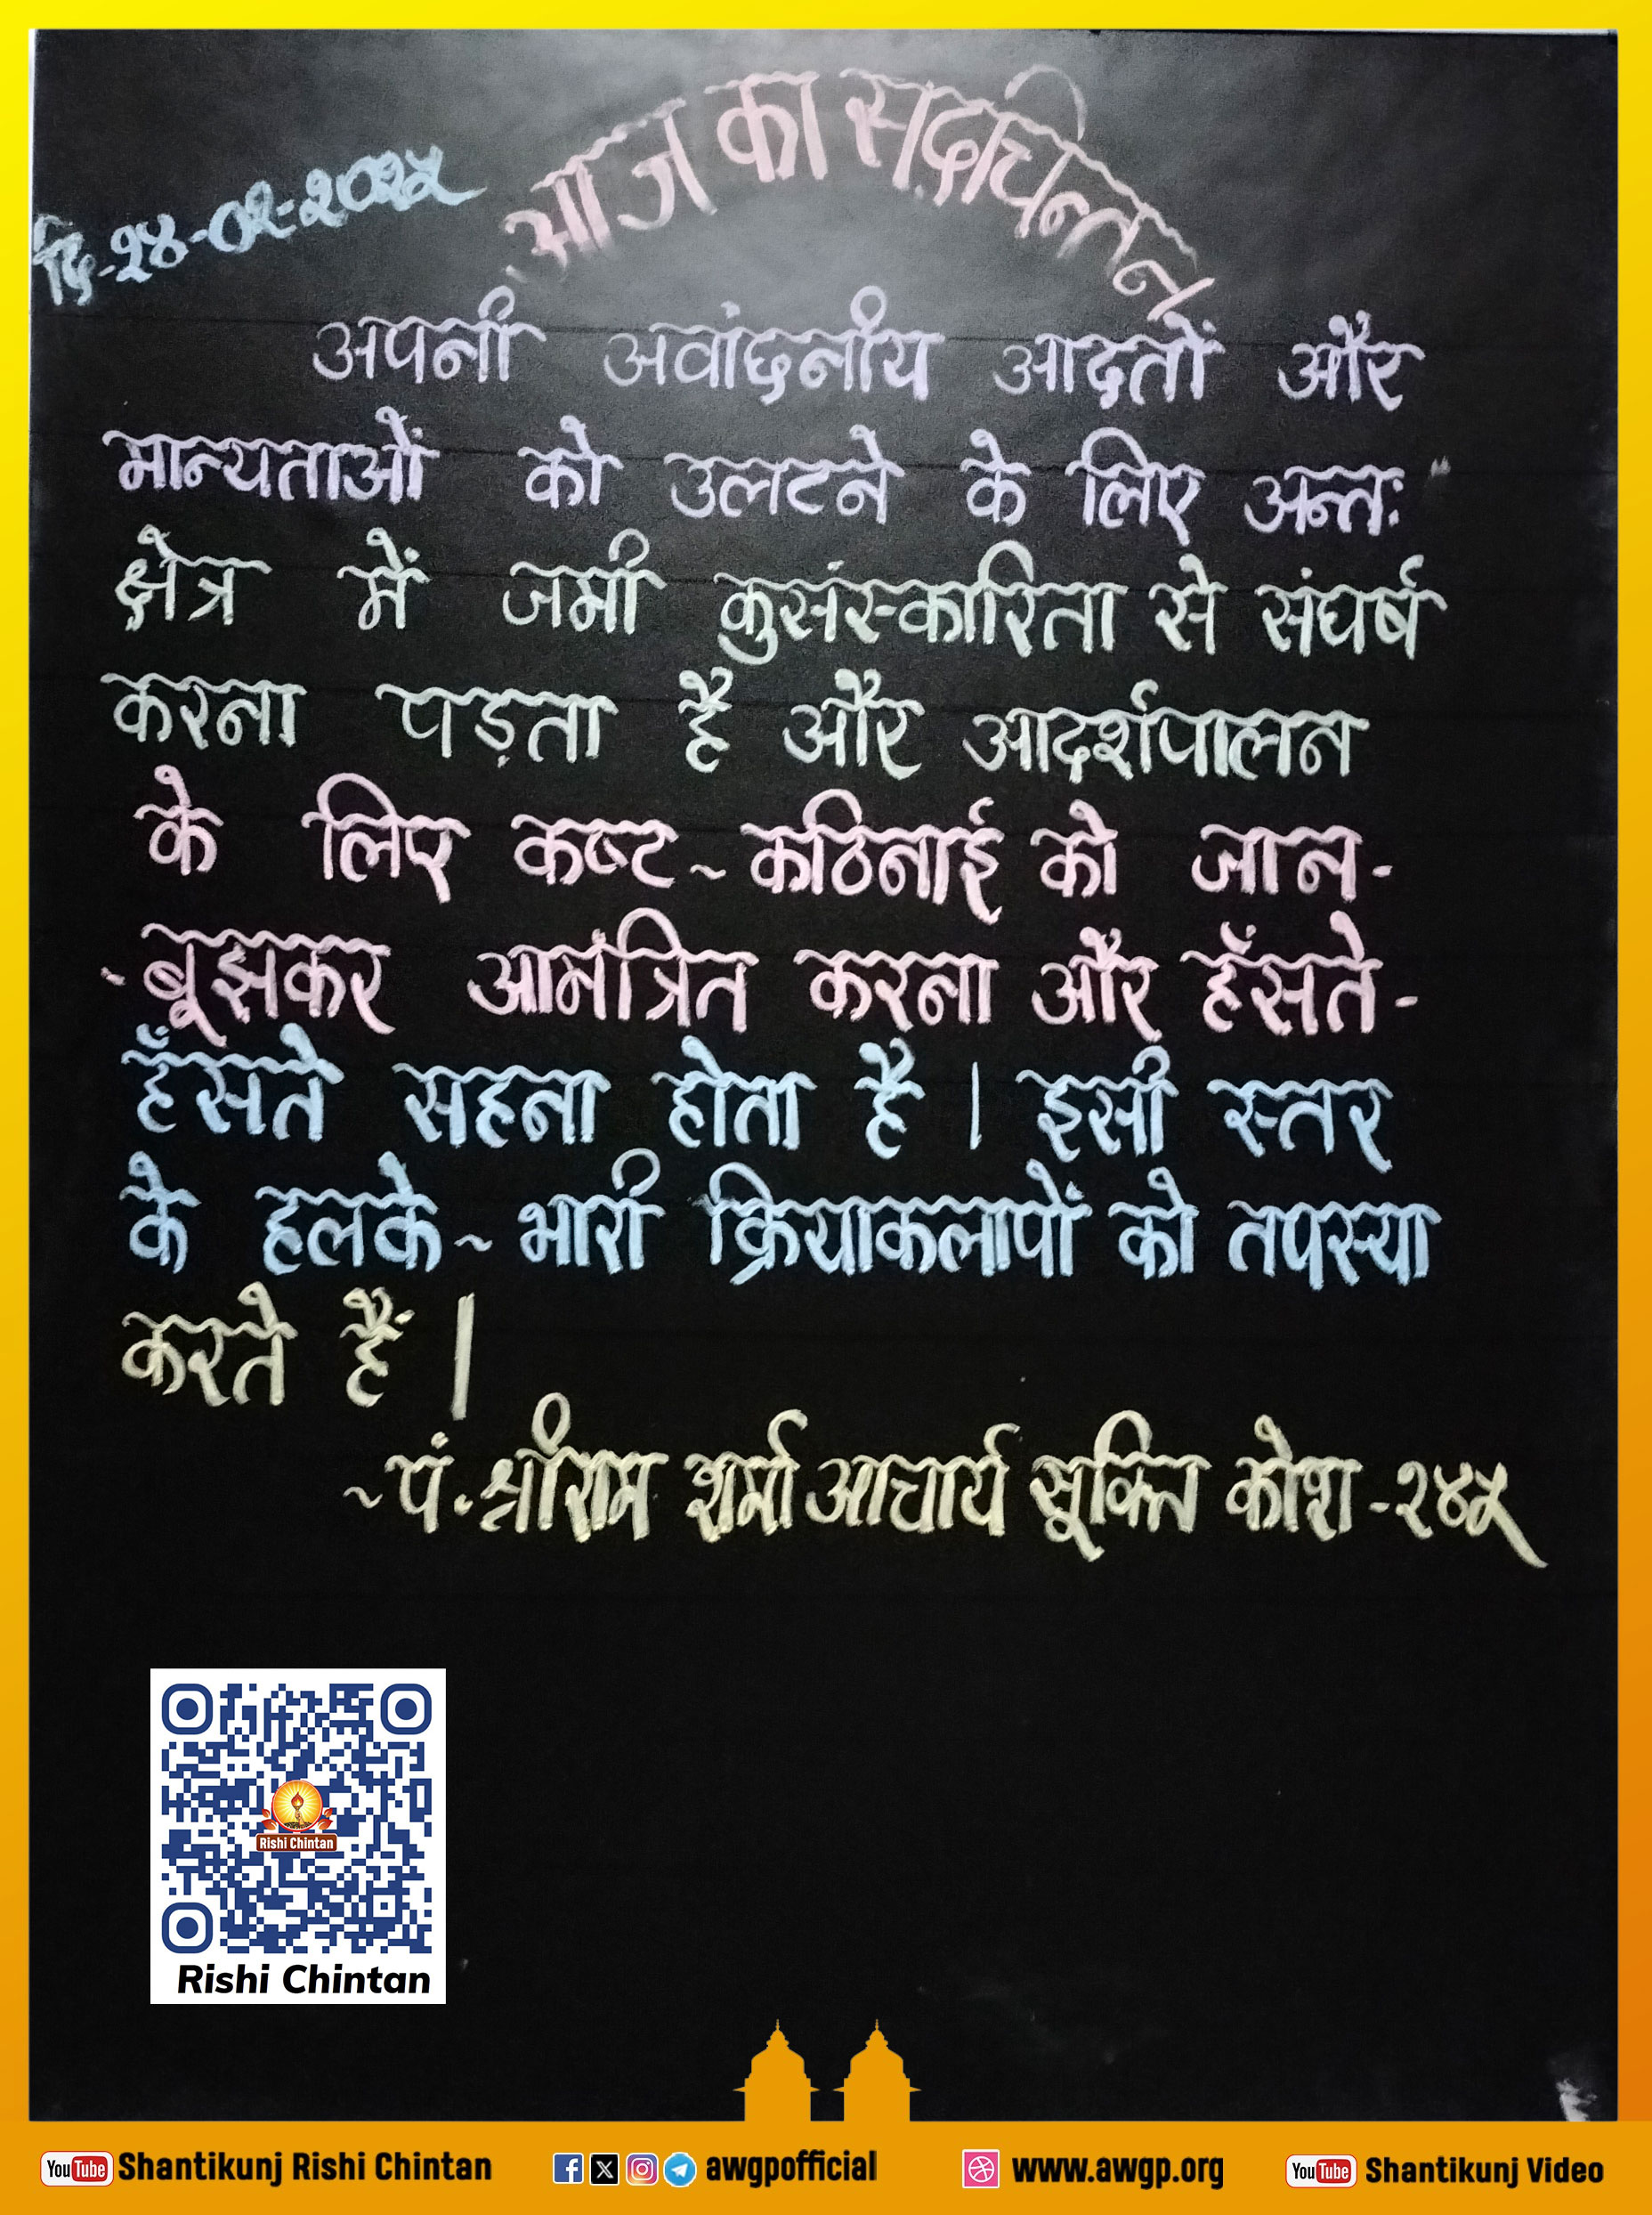 दि-२४-०२-२०२५
आज का सद्चिन्तन
अपनी अवांछनीय आदतों और
मान्यताओं को उलटने के लिए अन्तः
क्षेत्र में जमी कुसंस्कारिता से संघर्ष
करना पड़ता है और आदर्शपालन
के लिए कष्ट~कठिनाई को जान-
-बूझकर आमंत्रित करना और हँसते-
हँसते सहना होता है । इसी स्तर
के हलके~भारी क्रियाकलापों को तपस्या
करते हैं ।
~पं.श्रीराम शर्मा आचार्य सूक्ति कोश-२४५
Rishi Chintan
Rishi Chintan
YouTube Shantikunj Rishi Chintan awgpofficial www.awgp.org YouTube Shantikunj Video